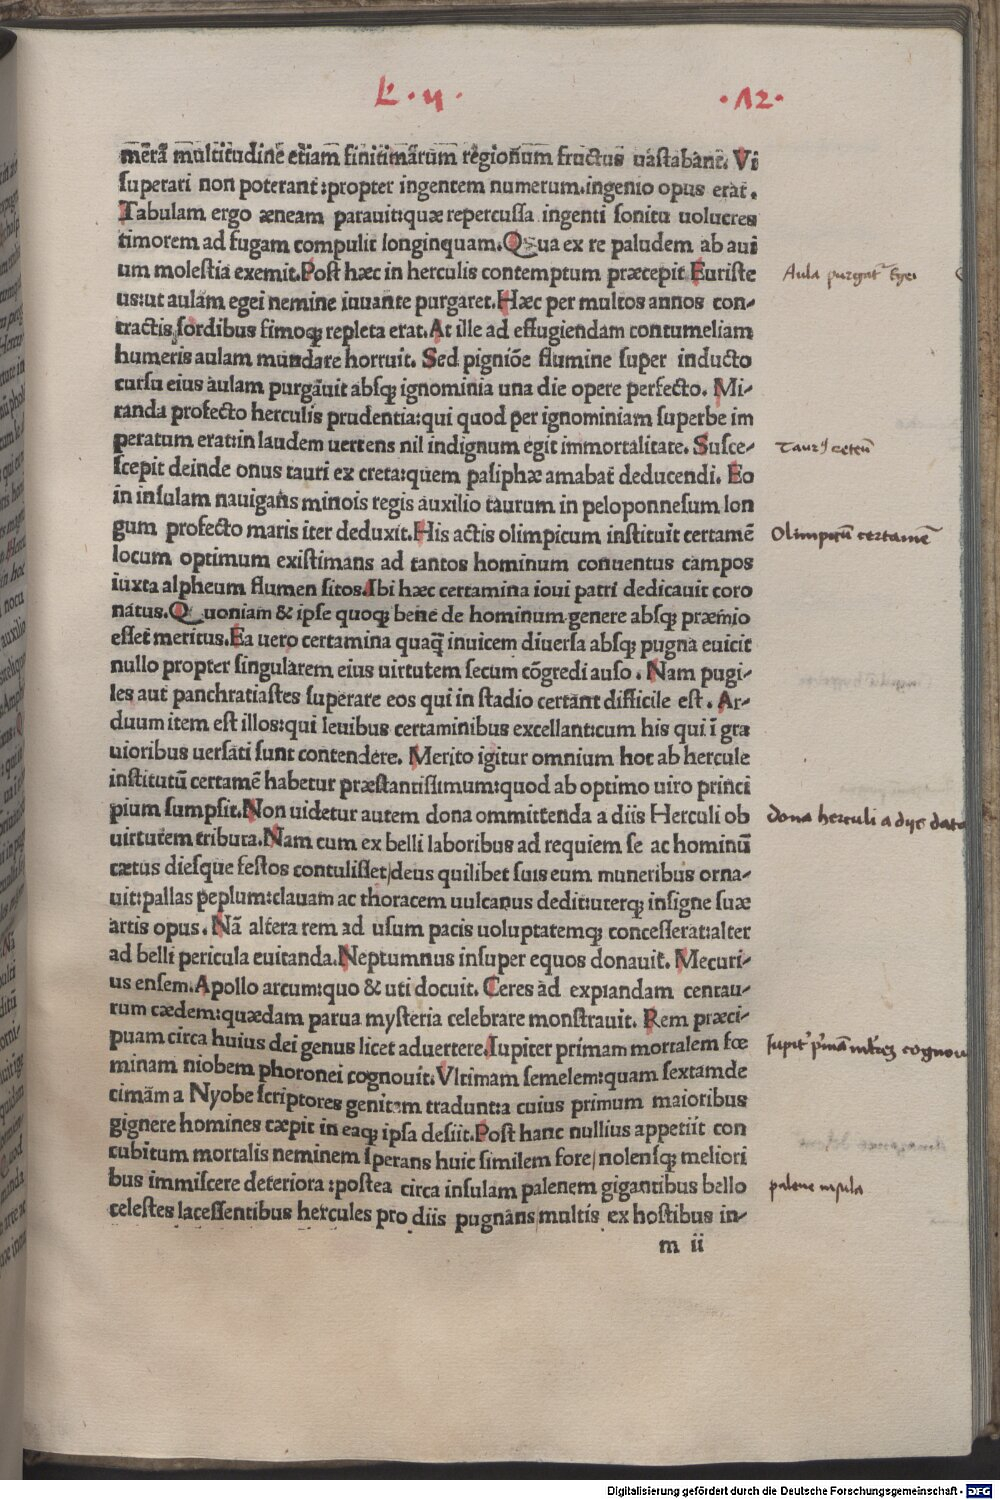 L. 4. .12.
merā multitudinē etiam finitimarum regionum fructus uastabant. Vi
superari non poterant: propter ingentem numerum. ingenio opus erat.
Tabulam ergo æneam parauit: quæ repercussa ingenti sonitu uolucres
timorem ad fugam compulit longinquam. Qua ex re paludem ab aui
um molestia exemit. Post hæc in herculis contemptum præcepit Euriste
us: ut aulam egei nemine iuuante purgaret. Hæc per multos annos con-
tractis sordibus fimoqꝫ repleta erat. At ille ad effugiendam contumeliam
humeris aulam mundare horruit. Sed pigniōe flumine super inducto
cursu eius aulam purgauit absqꝫ ignominia una die opere perfecto. Mi-
randa profecto herculis prudentia: qui quod per ignominiam superbe im
peratum erat: in laudem uertens nil indignum egit immortalitate. Susce-
scepit deinde onus tauri ex creta: quem pasiphæ amabat deducendi. Eo
in insulam nauigans minois regis auxilio taurum in peloponnesum lon
gum profecto maris iter deduxit. His actis olimpicum instituit certamē
locum optimum existimans ad tantos hominum conuentus campos
iuxta alpheum flumen sitos. Ibi hæc certamina ioui patri dedicauit coro
natus. Quoniam & ipse quoqꝫ bene de hominum genere absqꝫ præmio
esset meritus. Ea uero certamina quaqꝫ inuicem diuersa absqꝫ pugna euicit
nullo propter singularem eius uirtutem secum cōgredi auso. Nam pugi-
les aut panchratiastes superare eos qui in stadio certant difficile est. Ar-
duum item est illos: qui leuibus certaminibus excellant: cum his qui ī gra
uioribus uersati sunt contendere. Merito igitur omnium hoc ab hercule
institutū certamē habetur præstantissimum: quod ab optimo uiro princi
pium sumpsit. Non uidetur autem dona ommittenda a diis Herculi ob
uirtutem tributa. Nam cum ex belli laboribus ad requiem se ac hominū
cætus diesque festos contulisset/ deus quilibet suis eum muneribus orna-
uit: pallas peplum: clauam ac thoracem uulcanus dedit: uterqꝫ insigne suæ
artis opus. Nā altera rem ad usum pacis uoluptatemqꝫ concesserat: alter
ad belli pericula euitanda. Neptumnus insuper equos donauit. Mecuri-
us ensem. Apollo arcum: quo & uti docuit. Ceres ad expiandam centau-
rum cædem: quædam parua mysteria celebrare monstrauit. Rem præci-
puam circa huius dei genus licet aduertere. Iupiter primam mortalem fœ
minam niobem phoronei cognouit. Vltimam semelem: quam sextamde
cimam a Nyobe scriptores genitam tradunt: a cuius primum maioribus
gignere homines cæpit in eaqꝫ ipsa desiit. Post hanc nullius appetiit con
cubitum mortalis neminem sperans huic similem fore/ nolensqꝫ meliori
bus immiscere deteriora: postea circa insulam palenem gigantibus bello
celestes lacessentibus hercules pro diis pugnans multis ex hostibus in-
m ii
Aula purgat̉ Egei
Olimpicū certamē
dona herculi a dijs data
palene insula
Digitalisierung gefördert durch die Deutsche Forschungsgemeinschaft - DFG